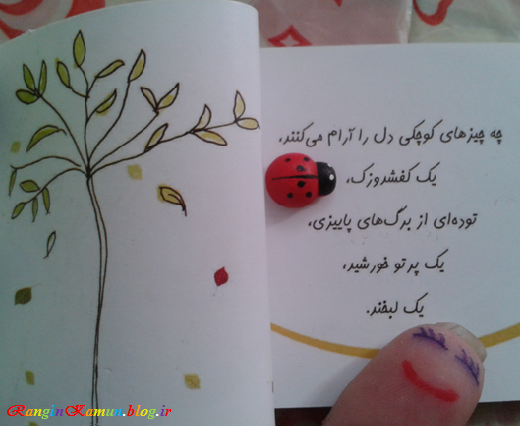 چه چیزهای کوچکی دل را آرام می‌کنند،
یک کفشدوزک،
توده‌ای از برگ‌های پاییزی،
یک پرتو خورشید،
یک لبخند.
RanginKamun.blog.ir